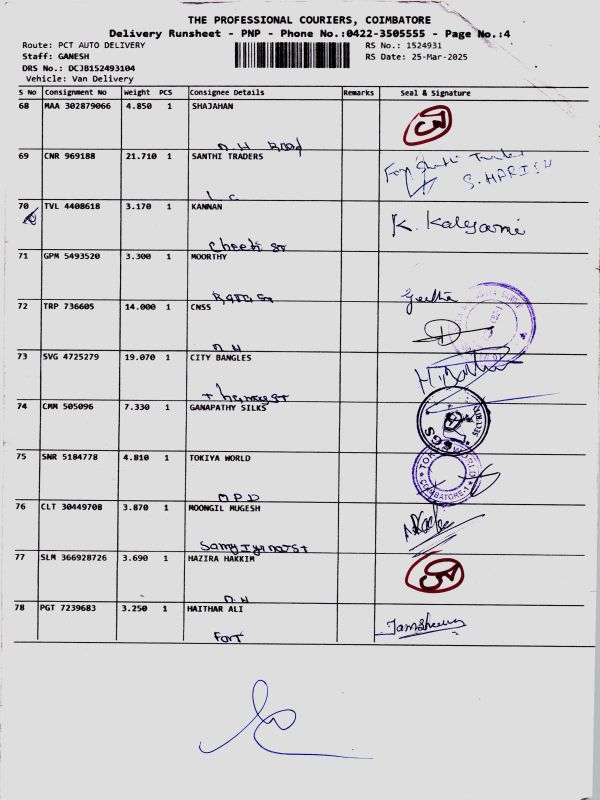 THE PROFESSIONAL COURIERS, COIMBATORE
Delivery Runsheet - PNP - Phone No.:0422-3505555 - Page No.:4
Route: PCT AUTO DELIVERY RS No.: 1524931
Staff: GANESH RS Date: 25-Mar-2025
DRS No.: DCJB152493104
Vehicle: Van Delivery
S No Consignment No Weight PCS Consignee Details Remarks Seal & Signature
68 MAA 302879066 4.850 1 SHAJAHAN
69 CNR 969188 21.710 1 SANTHI TRADERS
S. HARISH
70 TVL 4408618 3.170 1 KANNAN K. Kalyani
71 GPM 5493520 3.300 1 MOORTHY
Geetha
72 TRP 736605 14.000 1 CNSS
73 SVG 4725279 19.070 1 CITY BANGLES
74 CMM 505096 7.330 1 GANAPATHY SILKS
SECURITY
SGS
75 SNR 5184778 4.810 1 TOKIYA WORLD
COIMBATORE-1
OPD
76 CLT 30449708 3.870 1 MOONGIL MUGESH
77 SLM 366928726 3.690 1 HAZIRA HAKKIM
78 PGT 7239683 3.250 1 HAITHAR ALI
Fort